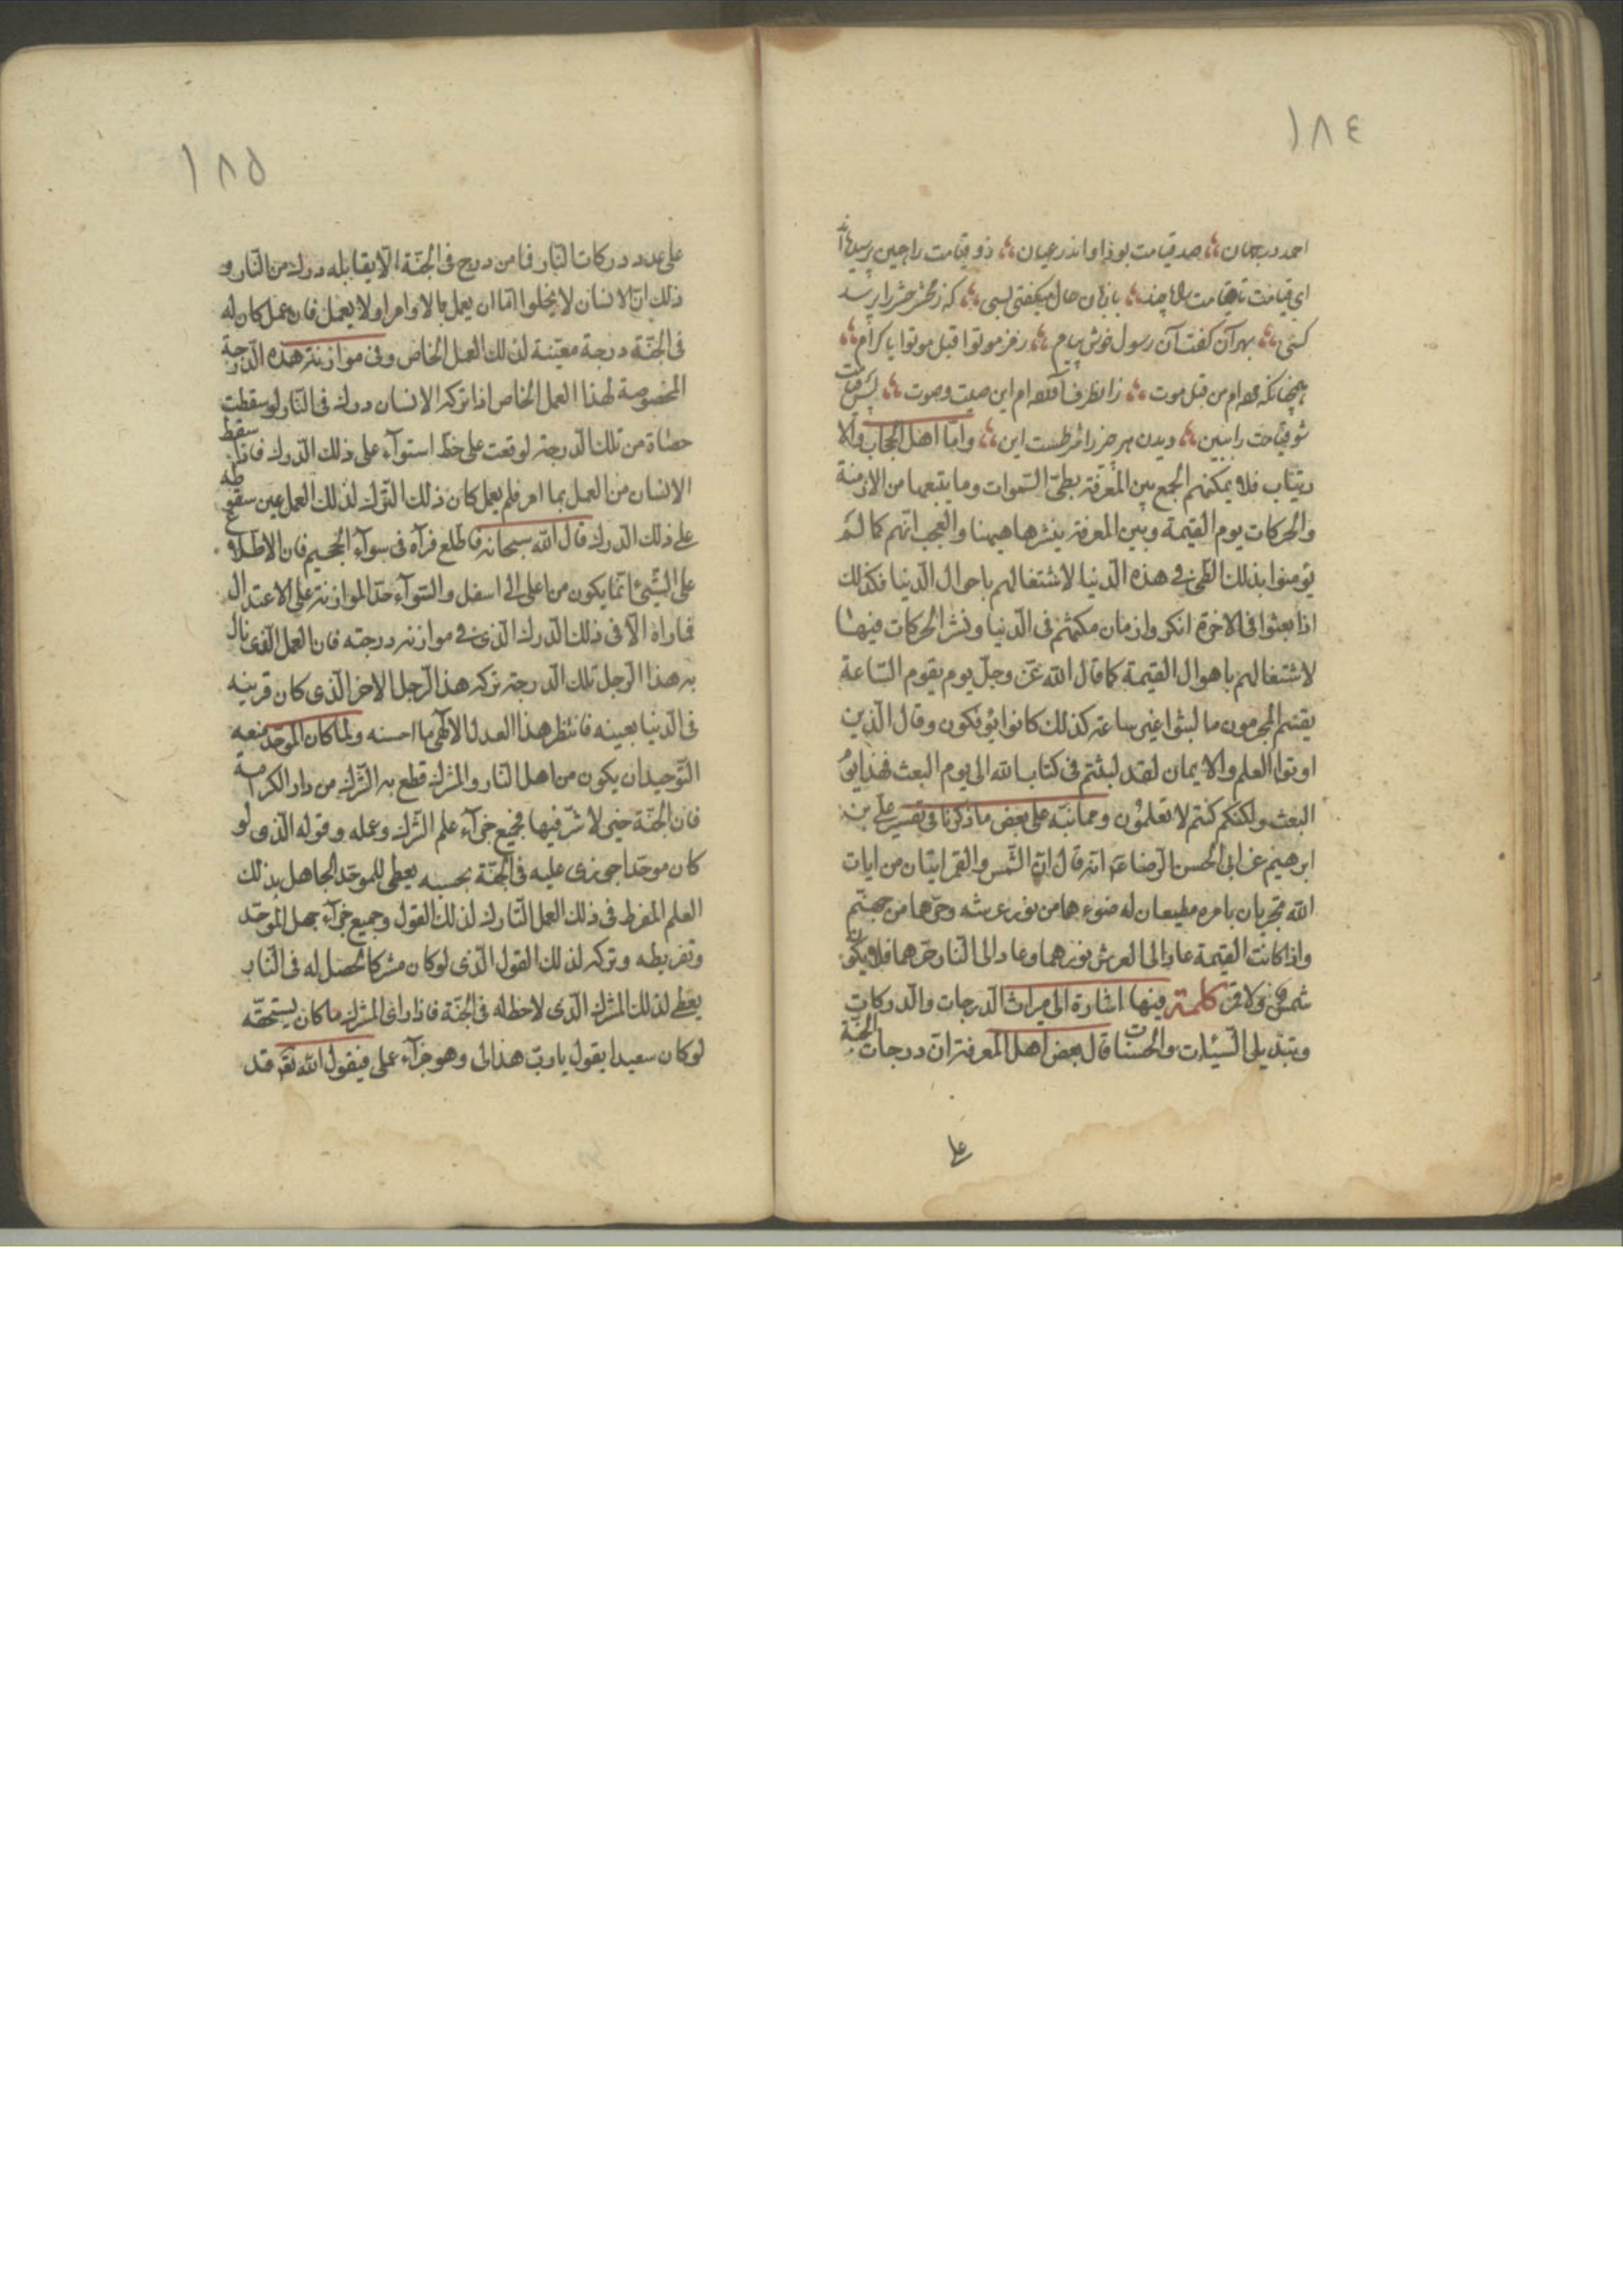 ١٨٤
احمد در جهان صد قیامت بود او اندر عیان زو قیامت را همی پرسیده اند
ای قیامت تا قیامت راه چند با زبان حال میگفتی بسی که ز محشر حشر را پرسد
کسی بهر آن گفت آن رسول خوش پیام رمز موتوا قبل موتوا یا کرام
همچنانکه مرده ام من قبل موت زانطرف آورده ام این صیت و صوت پس قیامت
شو قیامت را ببین دیدن هر چیز را شرطست این واما اهل الحجاب والا
رتیاب فلا یمکنهم الجمع بین المعرفة بطی السموات وما یتبعها من الازمنة
والحرکات یوم القیمة وبین المعرفة بنشرها هیهنا والعجب انهم کما لم
یؤمنوا بذلک الطی فی هذه الدنیا لاشتغالهم باحوال الدنیا فکذلک
اذا بعثوا فی الاخرة انکروا زمان مکثهم فی الدنیا ونشر الحرکات فیها
لاشتغالهم باهوال القیمة کما قال الله عز وجل یوم یقوم الساعة
یقسم المجرمون ما لبثوا غیر ساعة کذلک کانوا یؤفکون وقال الذین
اوتوا العلم والایمان لقد لبثتم فی کتاب الله الی یوم البعث فهذا یوم
البعث ولکنکم کنتم لا تعلمون ومما نبه علی بعض ما ذکرنا فی تفسیر علی بن
ابرهیم عن ابی الحسن الرضا ع انه قال ان الشمس والقمر ایتان من ایات
الله تجریان بامره مطیعان له ضوءهما من نور عرشه وحرهما من جهنم
واذا کانت القیمة عاد الی العرش نورهما وعاد الی النار حرهما فلا یکون
شمس ولا قمر کلمة فیها اشارة الی میراث الدرجات والدرکات
وتبدیلی السیئات والحسنات قال بعض اهل المعرفة ان درجات الجنة
علی
١٨٥
علی عدد درکات النار فما من درج فی الجنة الا یقابله درک من النار و
ذلک ان الانسان لا یخلوا اما ان یعمل بالاوامر او لا یعمل فان عمل کان له
فی الجنة درجة معینة لذلک العمل الخاص وفی موازنة هذه الدرجة
المخصوصة لهذا العمل الخاص اذا ترکه الانسان درک فی النار لو سقطت
حصاة من تلک الدرجة لوقعت علی خط استواء علی ذلک الدرک فاذا سقط
الانسان من العمل بما امر فلم یعمل کان ذلک الترک لذلک العمل عین سقوطه
علی ذلک الدرک قال الله سبحانه فاطلع فرآه فی سواء الجحیم فان الاطلاع
علی الشیء انما یکون من اعلی الی اسفل والسواء حد الموازنة علی الاعتدال
فما راه الا فی ذلک الدرک الذی فی موازنة درجته فان العمل الذی نال
به هذا الرجل تلک الدرجة ترکه هذا الرجل الاخر الذی کان قرینه
فی الدنیا بعینه فانظر هذا العدل الالهی ما احسنه ولما کان الموحد منعه
التوحید ان یکون من اهل النار والمشرک قطع به الشرک من دار الکرامة
فان الجنة خیر لا شر فیها فجمیع جزاء علم الشرک وعمله وقوله الذی لو
کان موحدا جوزی علیه فی الجنة بحسبه یعطی للموحد الجاهل بذلک
العلم المفرط فی ذلک العمل التارک لذلک القول وجمیع جزاء جهل الموحد
وتفریطه وترکه لذلک القول الذی لو کان مشرکا لحصل له فی النار
یعطی لذلک المشرک الذی لا حظ له فی الجنة فاذا رای المشرک ما کان یستحقه
لو کان سعیدا یقول یا رب هذا لی وهو جزاء عملی فیقول الله تعه قد